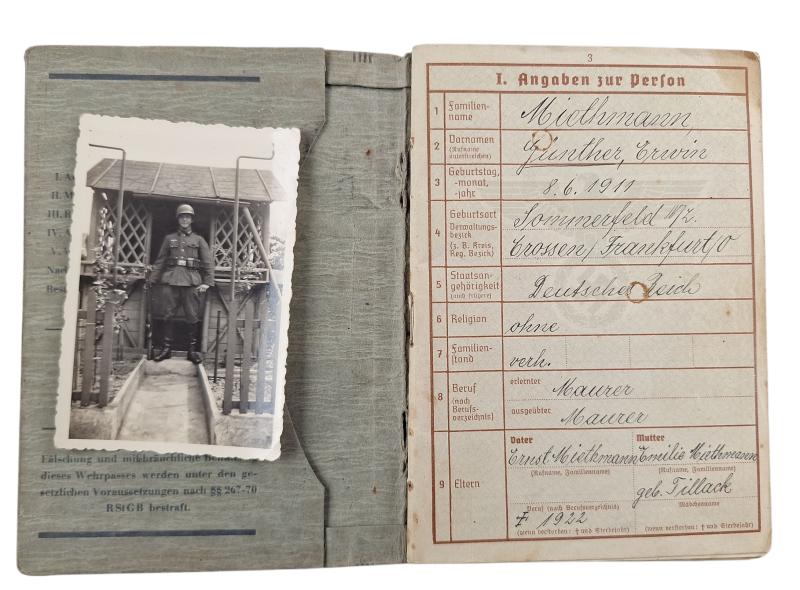 I. A
II. M
III. B
IV. A
V.
Nac
Bes
Fälschung und mißbräuchliche Benu
dieses Wehrpasses werden unter den ge-
setzlichen Voraussetzungen nach §§ 267-70
RStGB bestraft.
3
I. Angaben zur Person
1 Familien-
name
Miethmann
2 Vornamen
(Rufname
unterstreichen)
Günther, Erwin
3 Geburtstag,
-monat,
-jahr
8.6.1911
4 Geburtsort
Verwaltungs-
bezirk
(z. B. Kreis,
Reg. Bezirk)
Sommerfeld
Crossen/Frankfurt/O
5 Staatsan-
gehörigkeit
(auch frühere)
Deutsches Reich
6 Religion
ohne
7 Familien-
stand
verh.
8 Beruf
(nach
Berufs-
verzeichnis)
erlernter
Maurer
ausgeübter
Maurer
9 Eltern
Vater
Ernst Miethmann
(Rufname, Familienname)
Beruf (nach Berufsverzeichnis)
1922
(wenn verstorben: † und Sterbejahr)
Mutter
Emilie Miethmann
(Rufname, Familienname)
geb. Tillack
Mädchenname
(wenn verstorben: † und Sterbejahr)